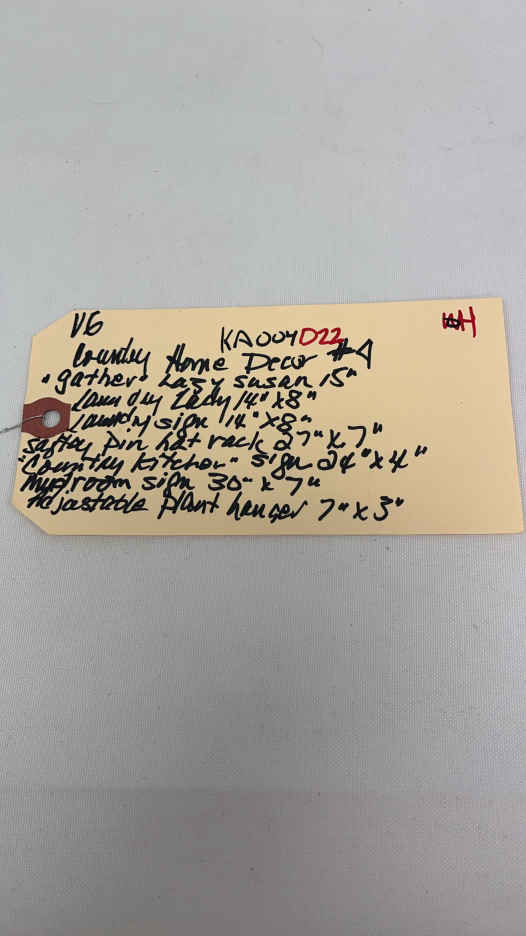 VG
KA004D22
Country Home Decor #4
"gather" Lazy susan 15"
Laundry Lady 14" x 8"
Laundry sign 14" x 8"
saftey pin hat rack 27" x 7"
"Country Kitchen" sign 24" x 4"
sign 30" x 7"
Adjustable plant hanger 7" x 3"